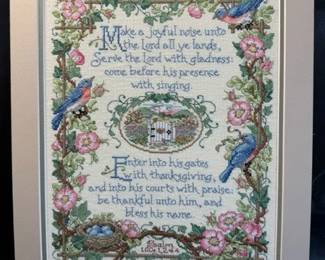 Make a joyful noise unto
the Lord all ye lands,
Serve the Lord with gladness:
come before his presence
with singing.
Enter into his gates
with thanksgiving,
and into his courts with praise:
be thankful unto him, and
bless his name.
Psalm